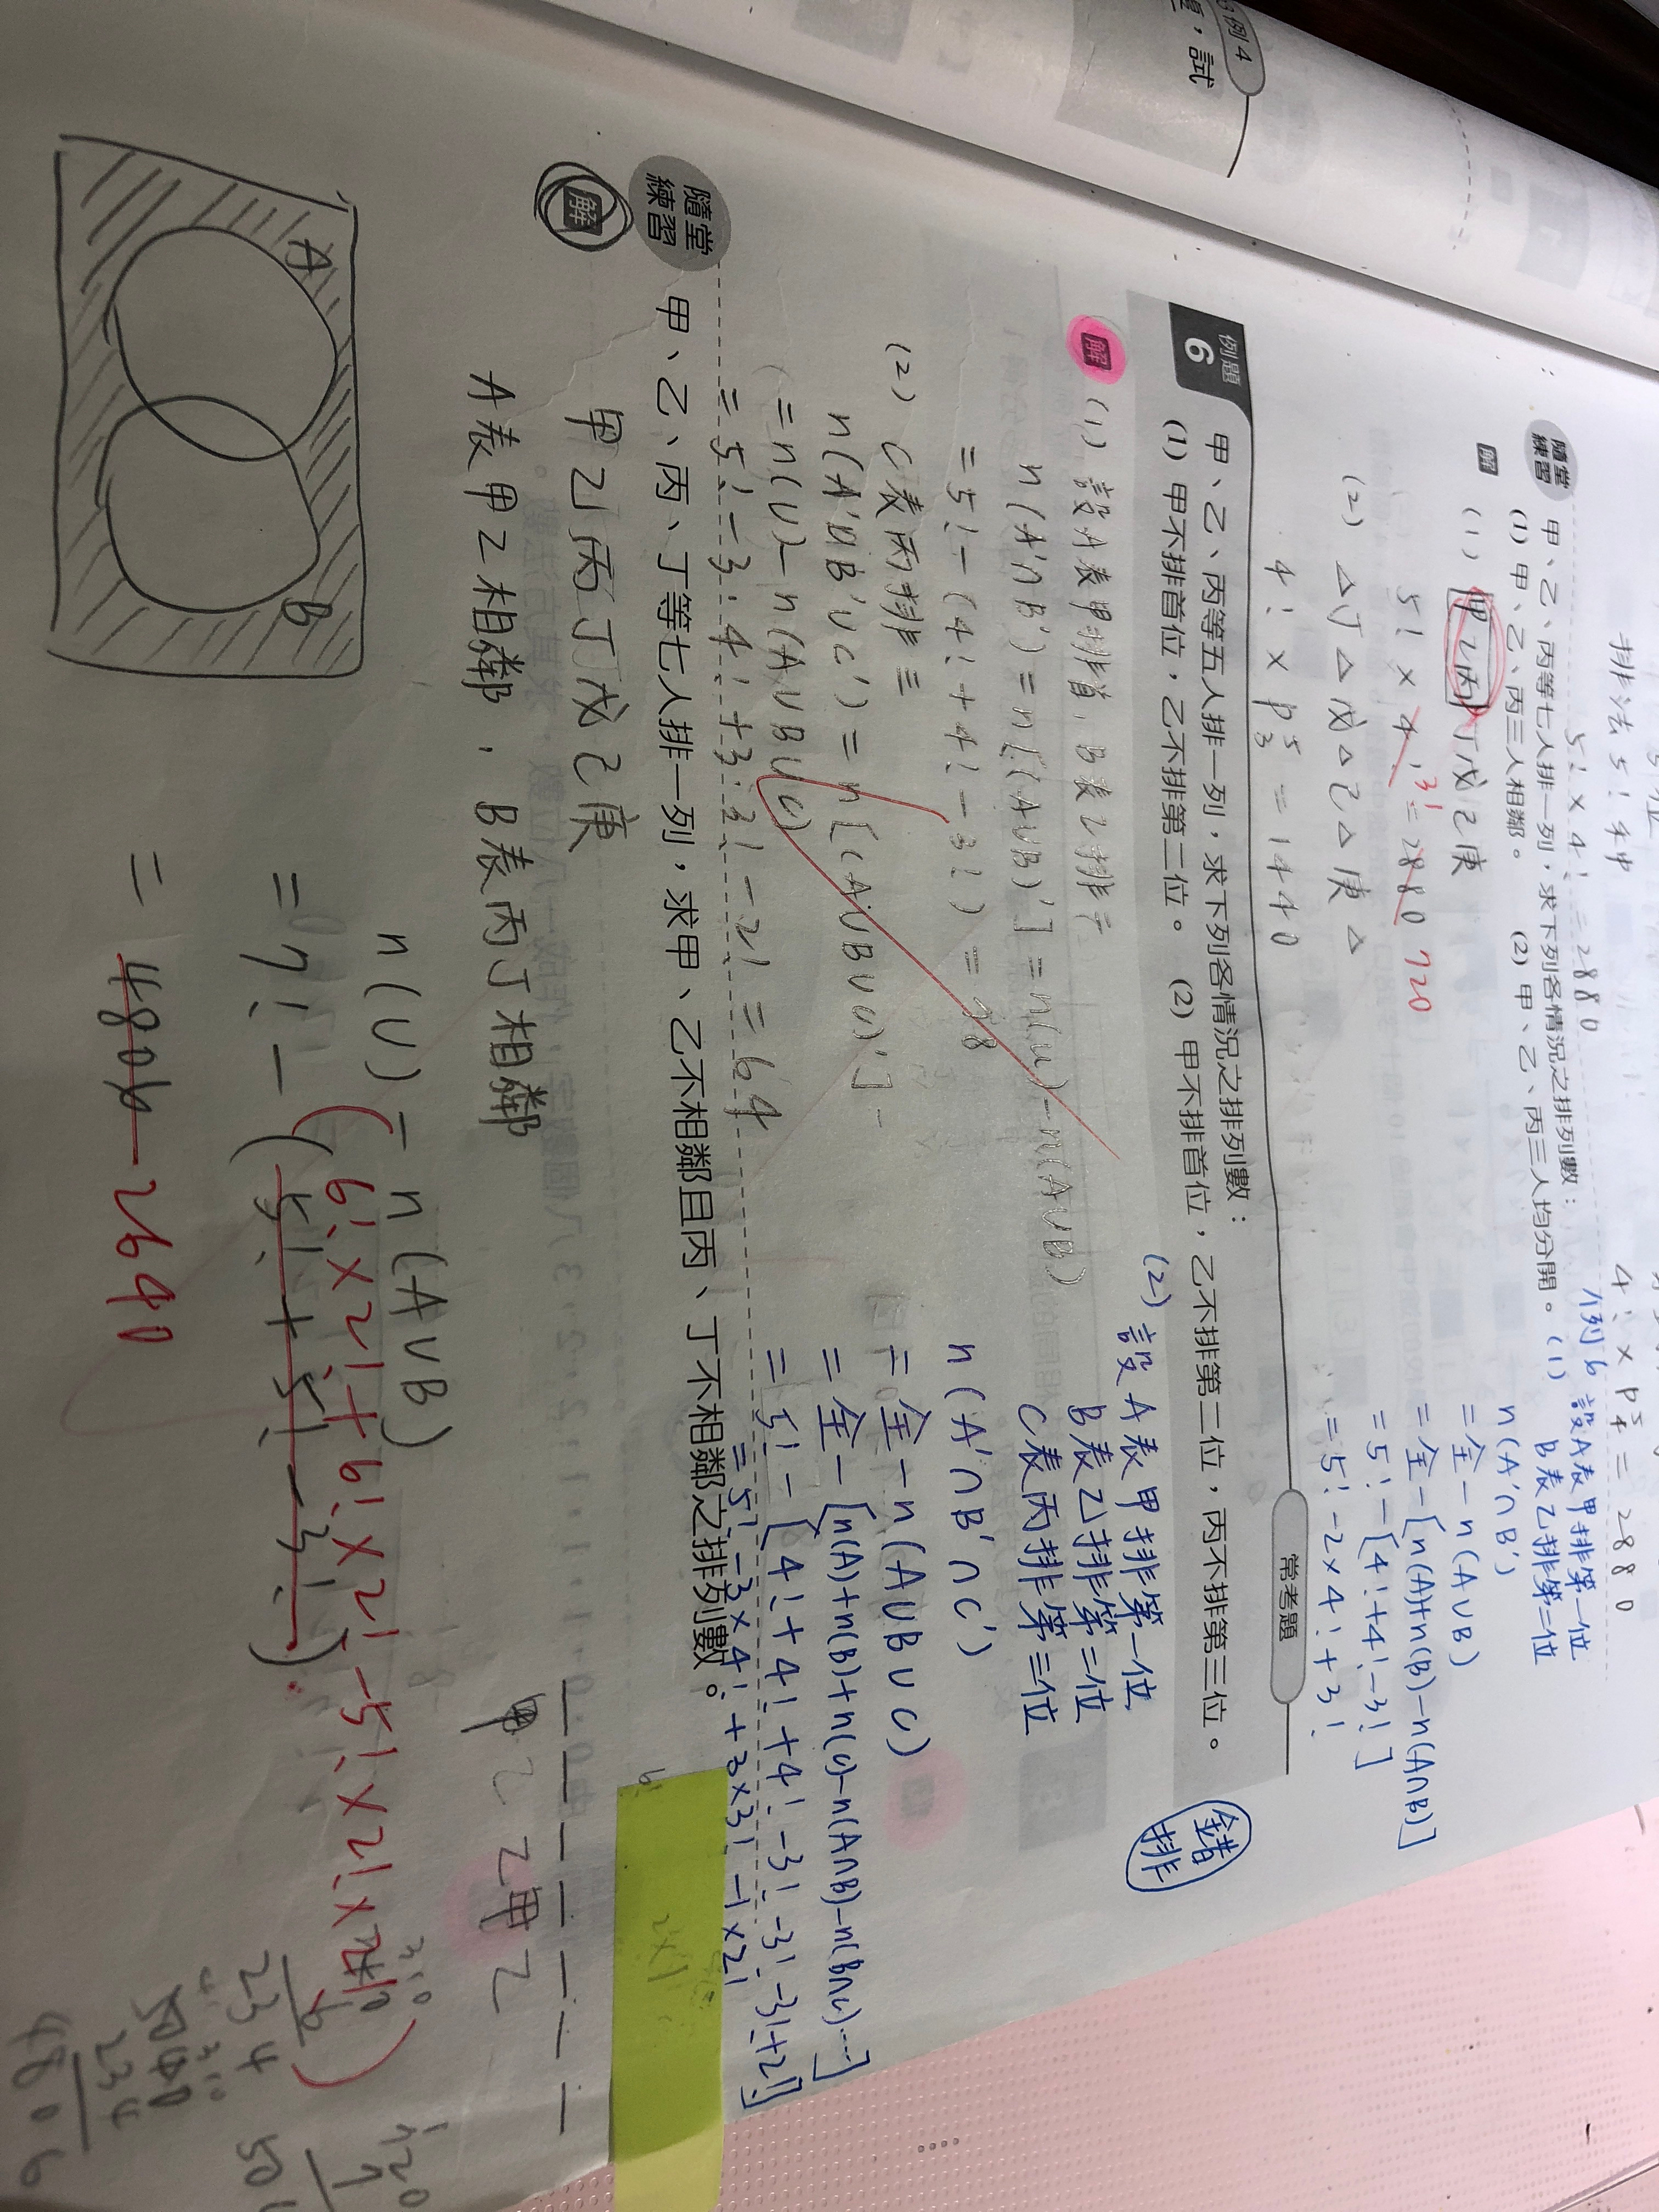 例 4
，試
排法 5! 種
5! × 4! = 2880
4! × P⁵₄ = 2880
隨堂練習
甲、乙、丙等七人排一列，求下列各情況之排列數：
(1) 甲、乙、丙三人相鄰。 (2) 甲、乙、丙三人均分開。
解
(1) 甲乙丙丁戊己庚
5! × 4! 3! = 2880 720
(2) △丁△戊△己△庚△
4! × P⁵₃ = 1440
例6 設A表甲排第一位
(1) B表乙排第二位
n(A'∩B')
=全-n(A∪B)
=全-[n(A)+n(B)-n(A∩B)]
=5!-[4!+4!-3!]
=5!-2×4!+3!
常考題
例題 6
甲、乙、丙等五人排一列，求下列各情況之排列數：
(1) 甲不排首位，乙不排第二位。 (2) 甲不排首位，乙不排第二位，丙不排第三位。
錯排
解
(1) 設A表甲排首，B表乙排于
n(A'∩B') = n[(A∪B)'] = n(U)-n(A∪B)
=5!-(4!+4!-3!)=78
(2) C表丙排三
n(A'∪B'∪C') = n[(A∪B∪C)']
= n(U)-n(A∪B∪C)
= 5!-3·4!+3·3!-2!=64
(2) 設A表甲排第一位
B表乙排第二位
C表丙排第三位
n(A'∩B'∩C')
=全-n(A∪B∪C)
=全-[n(A)+n(B)+n(C)-n(A∩B)-n(B∩C)....]
=5!-[4!+4!+4!-3!-3!-3!+2!]
=5!-3×4!+3×3!-1×2!
隨堂練習
甲、乙、丙、丁等七人排一列，求甲、乙不相鄰且丙、丁不相鄰之排列數。
解
甲乙丙丁戊己庚
A表甲乙相鄰，B表丙丁相鄰
甲乙 乙甲乙
2×1
A
B
n(U)-n(A∪B)
(6!×2!+6!×2!-5!×2!×2!)
=7!-(5!+5!-3!)
=4806 2640
240
6
234
5040
234
4806
720
7